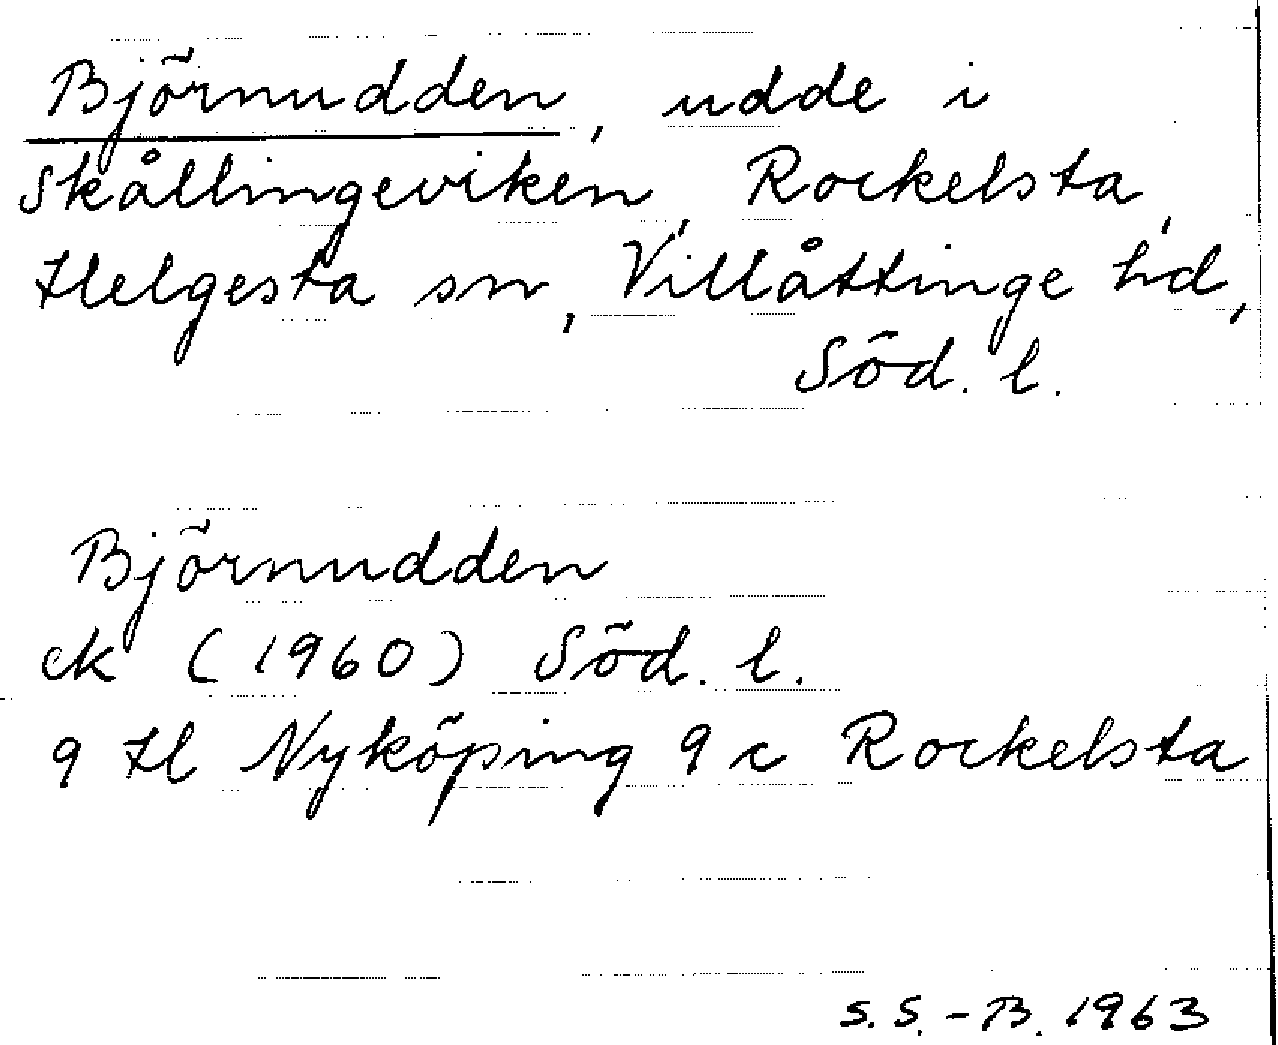 Björnudden, udde i
Skållingeviken, Rockelsta,
Helgesta sn, Villåttinge hd,
Söd. l.
Björnudden
ek (1960) Söd. l.
9 H Nyköping 9 c Rockelsta
S.S.-B. 1963